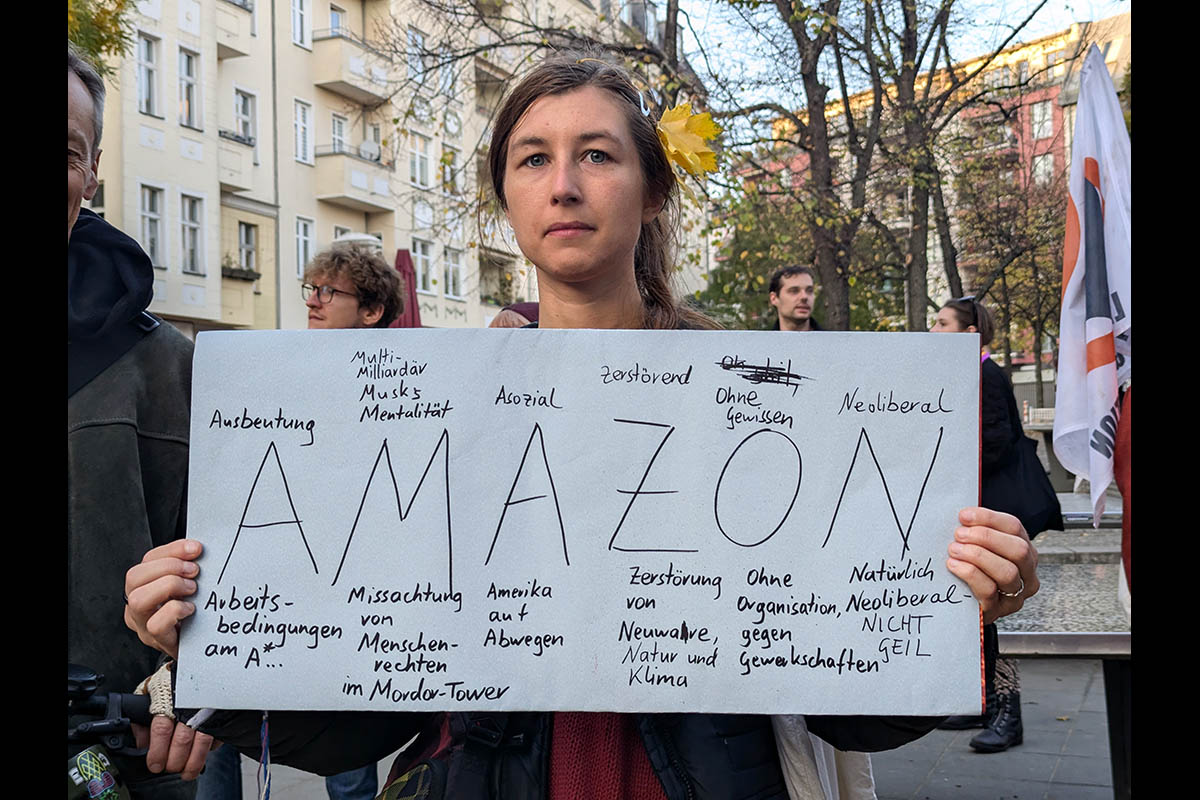 Ausbeutung
Multi-
Milliardär
Musks
Mentalität
Asozial
Zerstörend
Ohne
Gewissen
Neoliberal
AMAZON
Arbeits-
bedingungen
am A*...
Missachtung
von
Menschen-
rechten
im Mordor-Tower
Amerika
auf
Abwegen
Zerstörung
von
Neuware,
Natur und
Klima
Ohne
Organisation,
gegen
Gewerkschaften
Natürlich
Neoliberal-
NICHT
GEIL